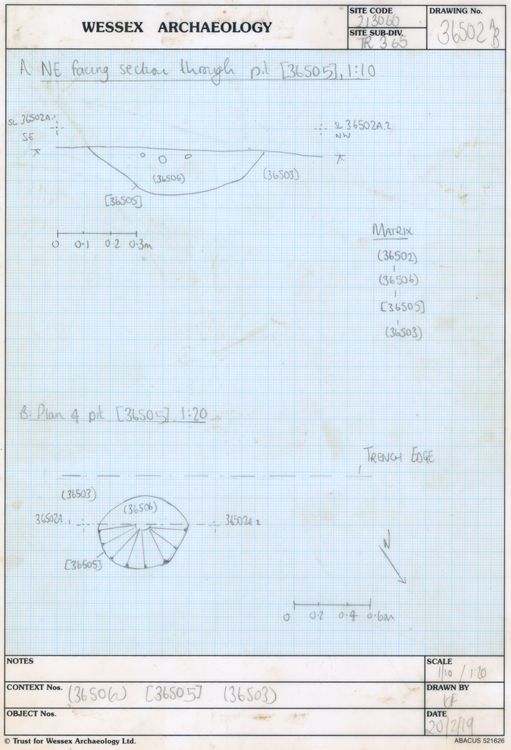 WESSEX ARCHAEOLOGY
SITE CODE
213060
SITE SUB-DIV.
TR 365
DRAWING No.
36502 A/B
A: NE facing section through pit [36505], 1:10
SL 36502A.1
SE
SL 36502A.2
NW
(36506)
(36503)
[36505]
0 0.1 0.2 0.3m
MATRIX
(36502)
(36506)
[36505]
(36503)
B: Plan of pit [36505] 1:20
TRENCH EDGE
(36503)
(36506)
36502A.1
36502A.2
[36505]
N
0 0.2 0.4 0.6m
NOTES
SCALE
1/10 / 1:20
CONTEXT Nos. (36506) [36505] (36503)
DRAWN BY
OBJECT Nos.
DATE
20/2/19
© Trust for Wessex Archaeology Ltd.
ABACUS 521626